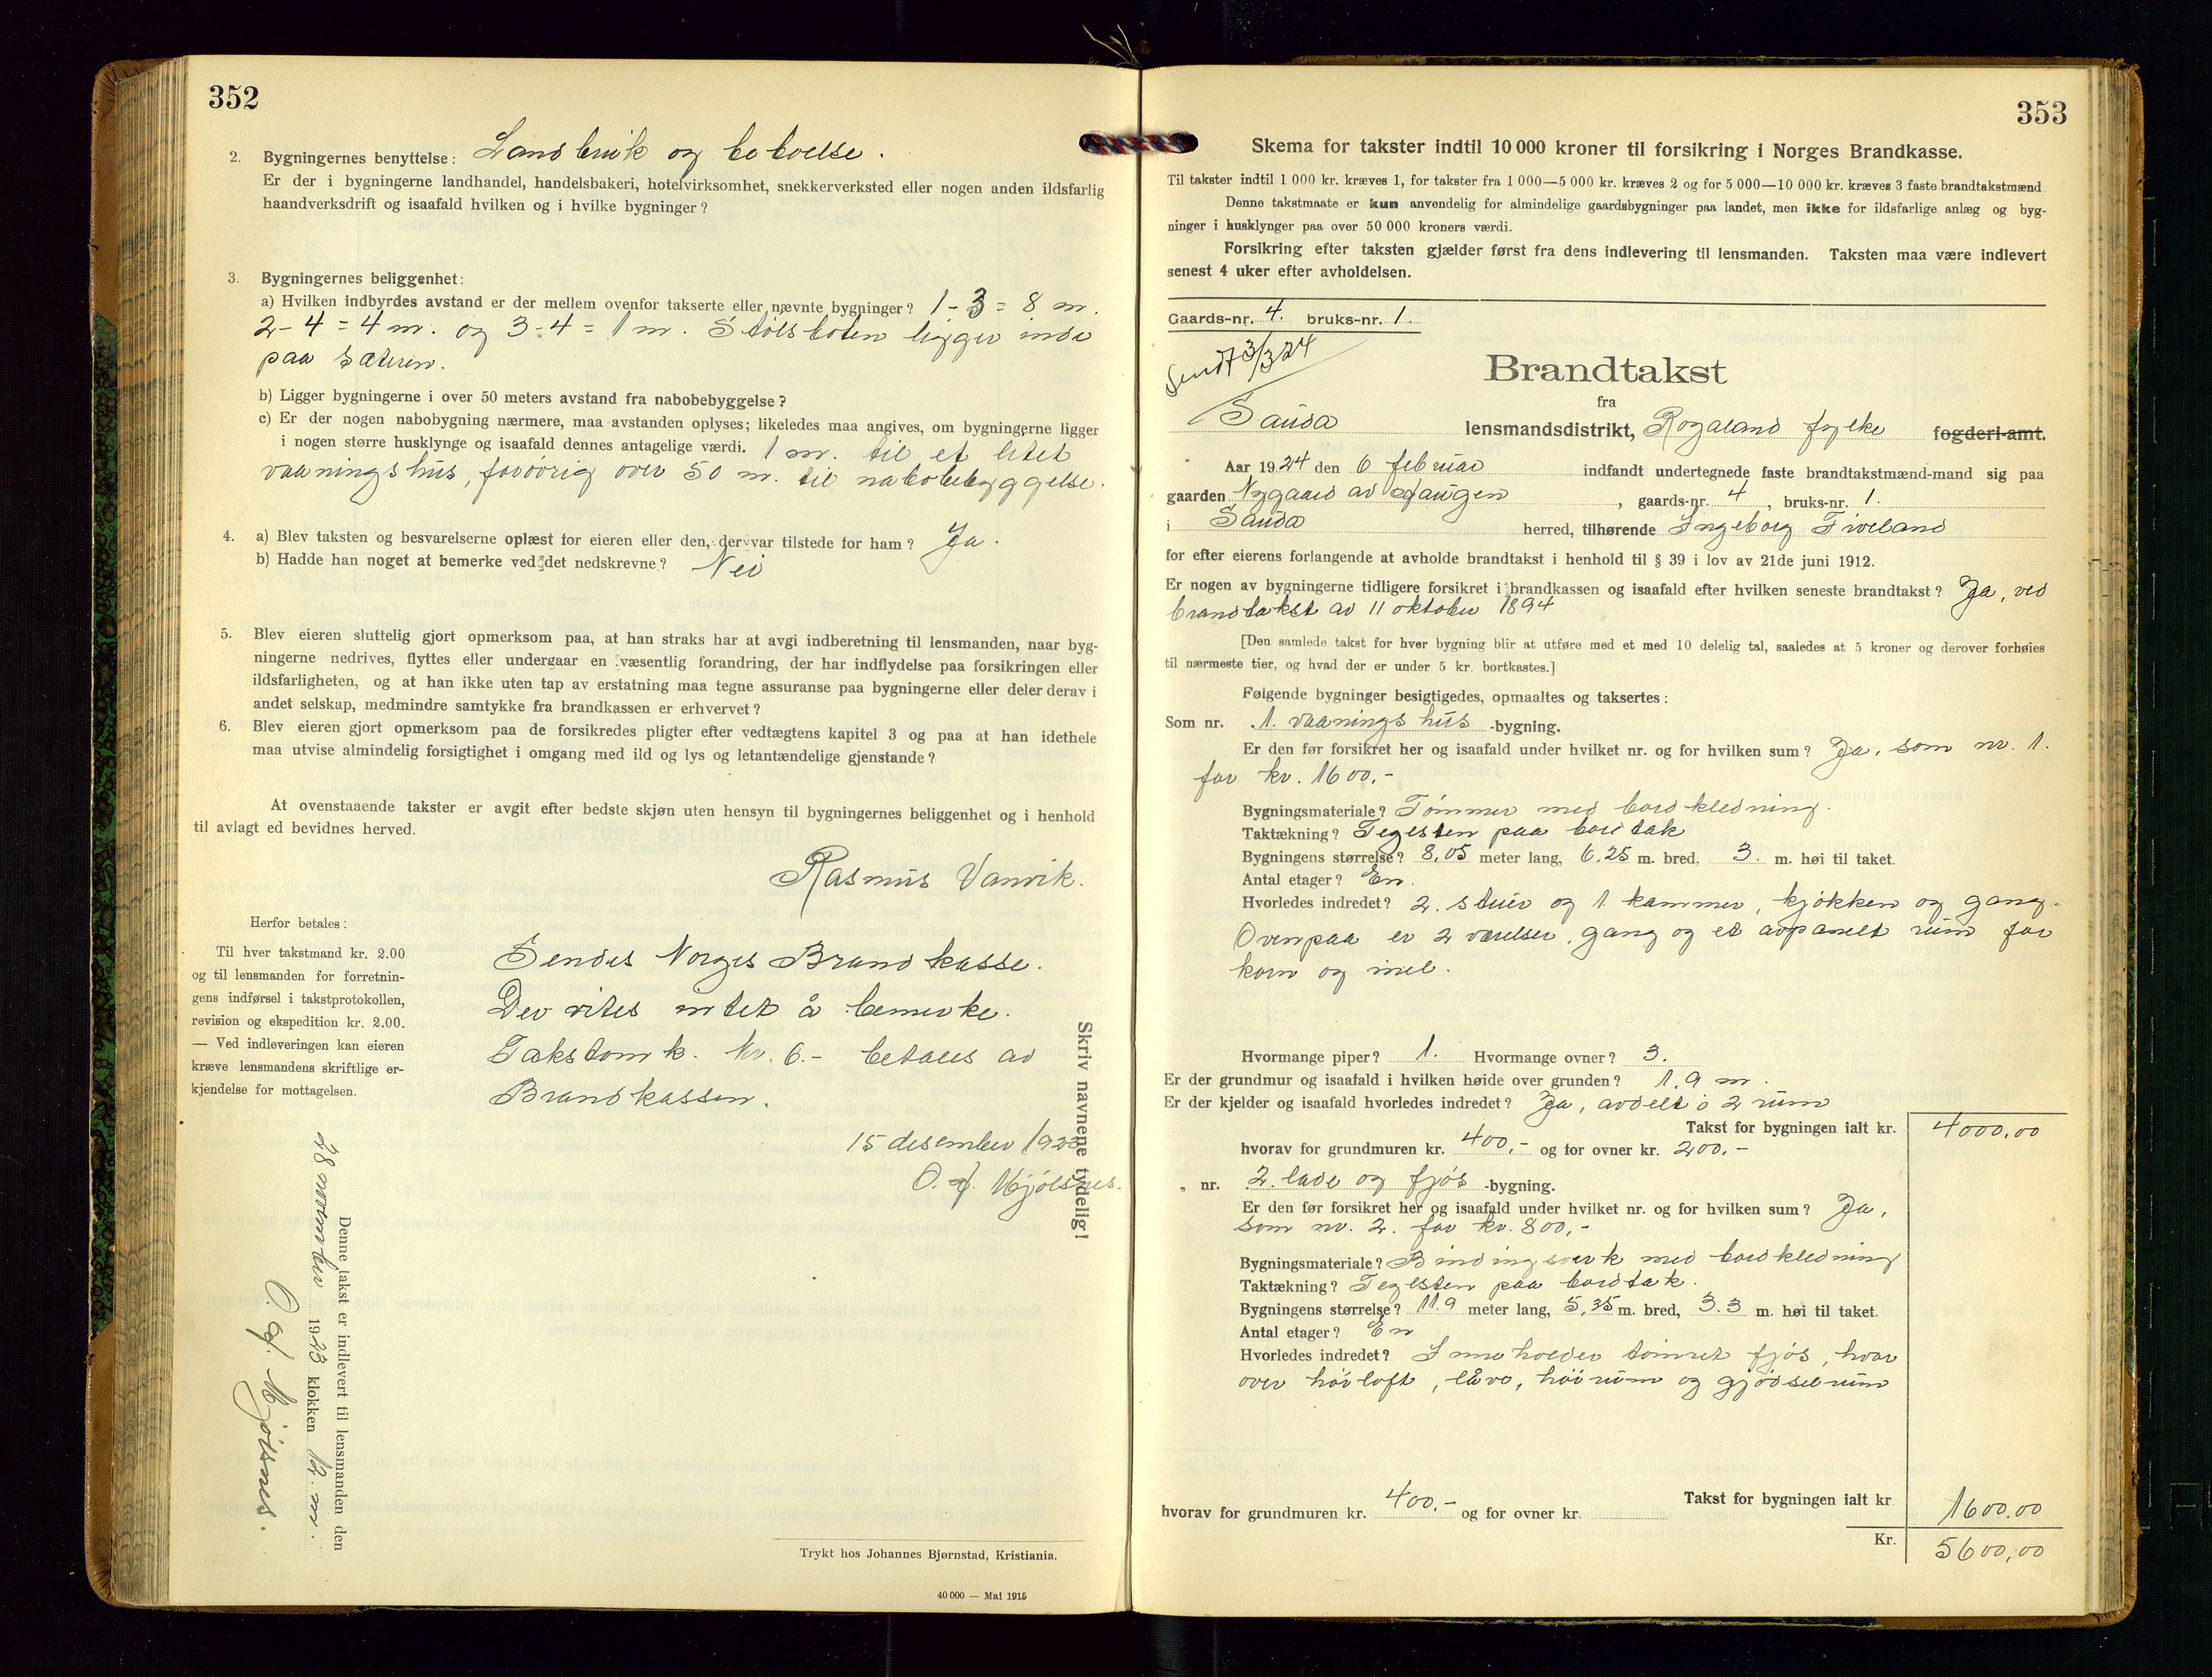 352
2. Bygningernes benyttelse: Landbruk og beboelse.
Er der i bygningerne landhandel, handelsbakeri, hotelvirksomhet, snekkerverksted eller nogen anden ildsfarlig
haandverksdrift og isaafald hvilken og i hvilke bygninger?
3. Bygningernes beliggenhet:
a) Hvilken indbyrdes avstand er der mellem ovenfor takserte eller nævnte bygninger? 1-3 = 8 m.
2-4 = 4 m. og 3-4 = 1 m. Stølsboden ligger inde
paa sæteren.
b) Ligger bygningerne i over 50 meters avstand fra nabobebyggelse?
c) Er der nogen nabobygning nærmere, maa avstanden oplyses; likeledes maa angives, om bygningerne ligger
i nogen større husklynge og isaafald dennes antagelige værdi. 1 m. til et litet
vaaningshus, forøvrig over 50 m. til nabobebyggelse.
4. a) Blev taksten og besvarelserne oplæst for eieren eller den, der var tilstede for ham? Ja.
b) Hadde han noget at bemerke ved det nedskrevne? Nei
5. Blev eieren sluttelig gjort opmerksom paa, at han straks har at avgi indberetning til lensmanden, naar byg-
ningerne nedrives, flyttes eller undergaar en væsentlig forandring, der har indflydelse paa forsikringen eller
ildsfarligheten, og at han ikke uten tap av erstatning maa tegne assuranse paa bygningerne eller deler derav i
andet selskap, medmindre samtykke fra brandkassen er erhvervet?
6. Blev eieren gjort opmerksom paa de forsikredes pligter efter vedtægtens kapitel 3 og paa at han idethele
maa utvise almindelig forsigtighet i omgang med ild og lys og letantændelige gjenstande?
At ovenstaaende takster er avgit efter bedste skjøn uten hensyn til bygningernes beliggenhet og i henhold
til avlagt ed bevidnes herved.
Rasmus Vanvik.
Herfor betales:
Til hver takstmand kr. 2.00
og til lensmanden for forretnin-
gens indførsel i takstprotokollen,
revision og ekspedition kr. 2.00.
— Ved indleveringen kan eieren
kræve lensmandens skriftlige er-
kjendelse for mottagelsen.
Sendes Norges Brandkasse.
Der vites intet å bemerke.
Takstomk. kr. 6.- betales av
Brandkassen.
15 desember 1923
O. J. Mjölsnes.
Skriv navnene tydelig!
Denne takst er indlevert til lensmanden den
28 november 1923 klokken 12 m.
O. J. Mjölsnes.
Trykt hos Johannes Bjørnstad, Kristiania.
40 000 — Mai 1915
353
Skema for takster indtil 10 000 kroner til forsikring i Norges Brandkasse.
Til takster indtil 1 000 kr. kræves 1, for takster fra 1 000—5 000 kr. kræves 2 og for 5 000—10 000 kr. kræves 3 faste brandtakstmænd
Denne takstmaate er kun anvendelig for almindelige gaardsbygninger paa landet, men ikke for ildsfarlige anlæg og byg-
ninger i husklynger paa over 50 000 kroners værdi.
Forsikring efter taksten gjælder først fra dens indlevering til lensmanden. Taksten maa være indlevert
senest 4 uker efter avholdelsen.
Gaards-nr. 4. bruks-nr. 1.
Sendt 3/3 24
Brandtakst
fra
Sauda lensmandsdistrikt, Rogaland fylke fogderi-amt.
Aar 1924 den 6 februar indfandt undertegnede faste brandtakstmænd-mand sig paa
gaarden Nygaard av Haugen, gaards-nr. 4, bruks-nr. 1.
i Sauda herred, tilhørende Ingeborg Fiveland
for efter eierens forlangende at avholde brandtakst i henhold til § 39 i lov av 21de juni 1912.
Er nogen av bygningerne tidligere forsikret i brandkassen og isaafald efter hvilken seneste brandtakst? Ja, ved
brandtakst av 11 oktober 1894
[Den samlede takst for hver bygning blir at utføre med et med 10 delelig tal, saaledes at 5 kroner og derover forhøies
til nærmeste tier, og hvad der er under 5 kr. bortkastes.]
Følgende bygninger besigtigedes, opmaaltes og taksertes:
Som nr. 1. vaaningshus -bygning.
Er den før forsikret her og isaafald under hvilket nr. og for hvilken sum? Ja, som nr. 1.
for kr. 1600.-
Bygningsmateriale? Tømmer med bordkledning.
Taktækning? Teglsten paa bordtak
Bygningens størrelse? 8,05 meter lang, 6.25 m. bred, 3. m. høi til taket.
Antal etager? En.
Hvorledes indredet? 2. stuer og 1. kammer, kjøkken og gang.
Ovenpaa er 2 værelser, gang og et avpanelt rum for
korn og mel.
Hvormange piper? 1. Hvormange ovner? 3.
Er der grundmur og isaafald i hvilken høide over grunden? 1,9 m.
Er der kjelder og isaafald hvorledes indredet? Ja, avdelt i 2 rum
Takst for bygningen ialt kr. 4000,00
hvorav for grundmuren kr. 400,- og for ovner kr. 200.-
„ nr. 2. lade og fjøs -bygning.
Er den før forsikret her og isaafald under hvilket nr. og for hvilken sum? Ja,
som nr. 2. for kr. 800,-
Bygningsmateriale? Bindingsverk med bordkledning
Taktækning? Teglsten paa bordtak.
Bygningens størrelse? 11.9 meter lang, 5,35 m. bred, 3.3 m. høi til taket.
Antal etager? En
Hvorledes indredet? Inneholder tømret fjøs, hvor
over høiloft, låve, høirum og gjødselrum
Takst for bygningen ialt kr 1600.00
hvorav for grundmuren kr. 400.- og for ovner kr.
Kr. 5600,00